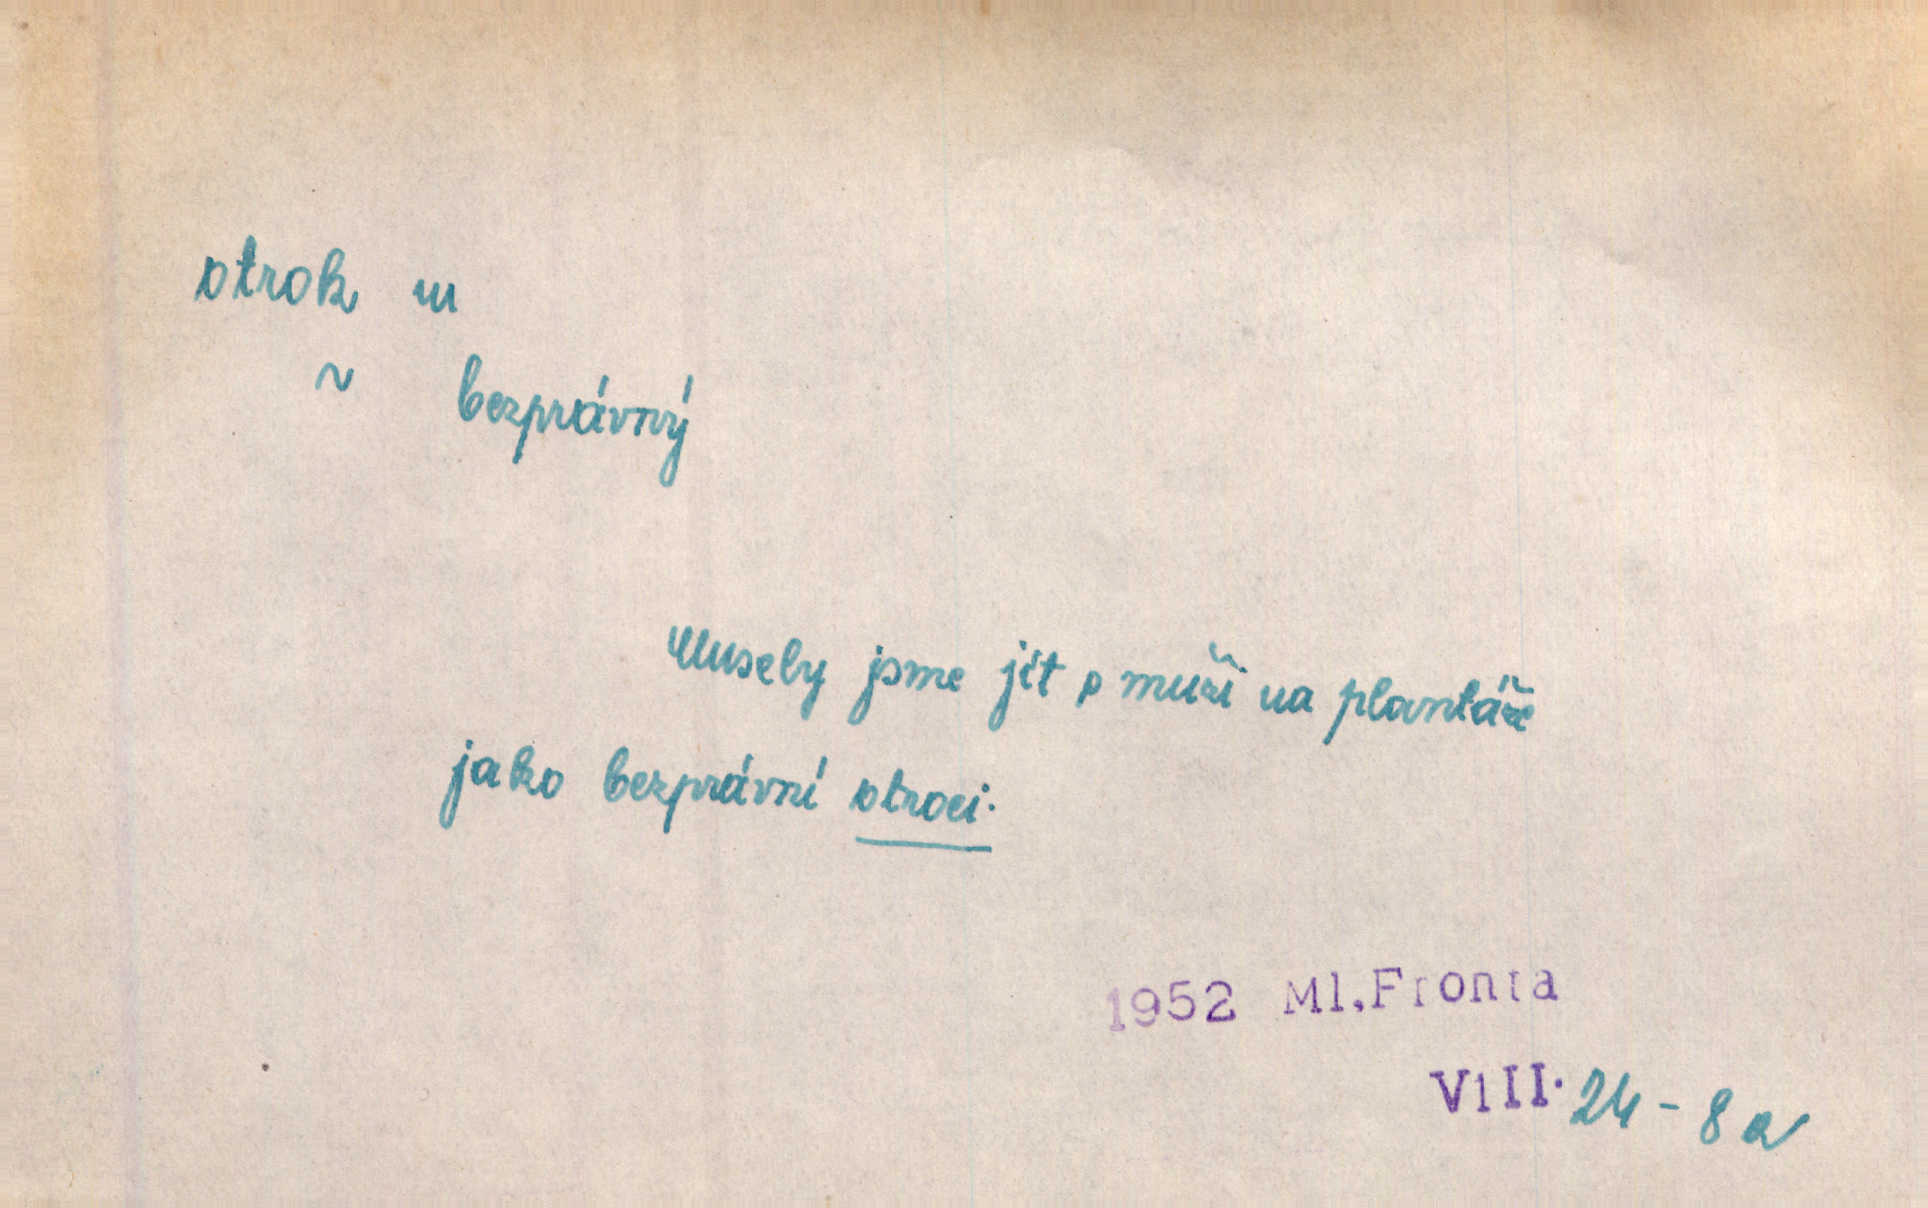 otrok m
~ bezprávný
Musely jsme jít s muži na plantáže
jako bezprávní otroci.
1952 Ml.Fronta
VIII. 24 - 8 a